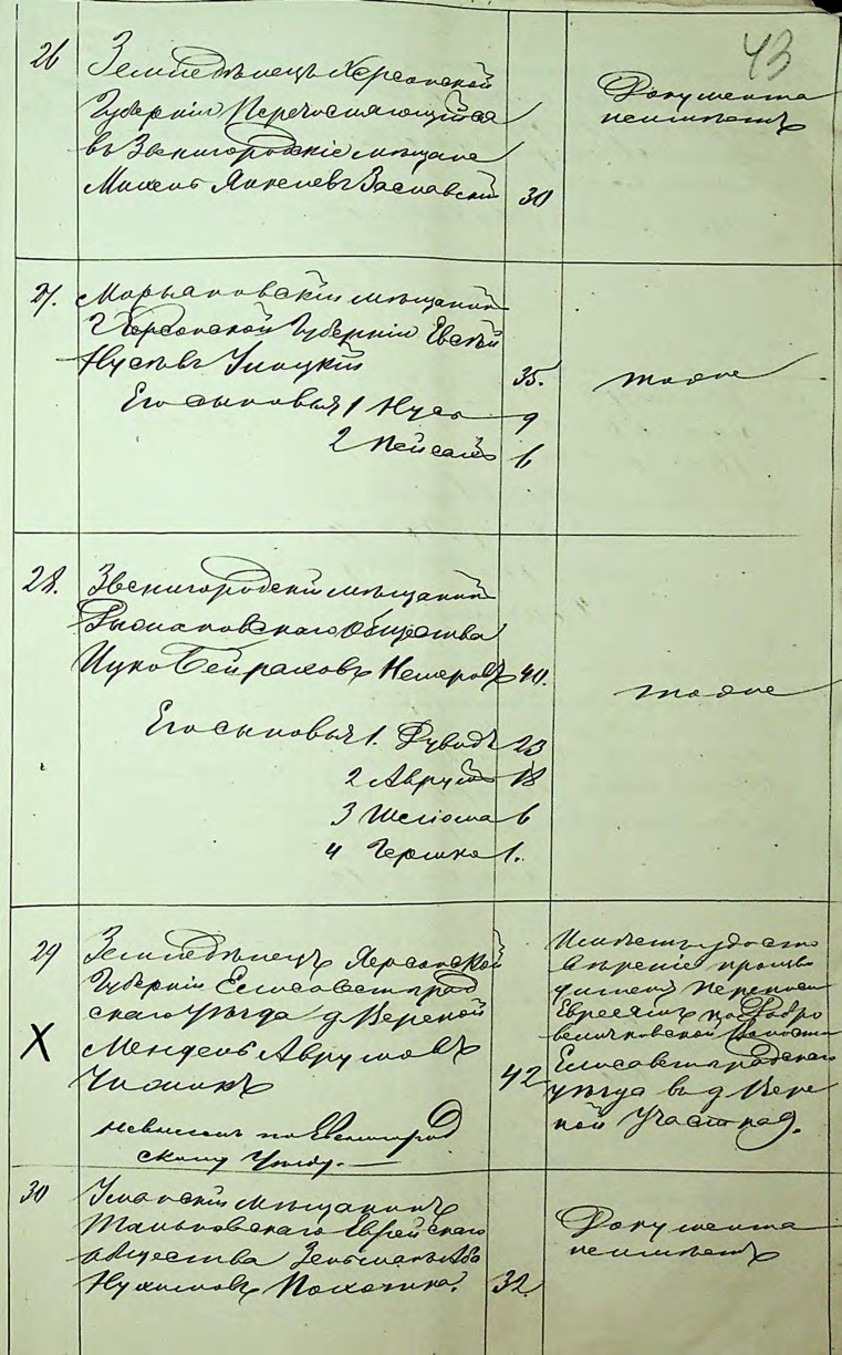 43
26 Земледѣлецъ Херсонской
Губерніи Перечисляющійся
въ Звенигородскіе мѣщане
Михель Янкелевъ Заславскій 30
Документа
неимѣетъ
27. Марьяновскій мѣщанинъ
Херсонской Губерніи Евсѣй
Нусевъ Улицкій 35.
тоже
Его сыновья 1 Нусь 9
2 Пейсахъ 6
28. Звенигородскій мѣщанинъ
Рыжановскаго Общества
Ицко Немеровъ 40.
тоже
Его сыновья 1. Дувидъ 23
2 Аврумъ 18
3 Шеліома 6
4 Гершко 1.
29 Земледѣлецъ Херсонской
Губерніи Елисаветград
скаго Уѣзда д
X Мендель Аврумовъ
42
по Звенигород
скому Уѣзду.
Имѣетъ удосто
вѣреніе
переписи
Евреямъ по Добро
величковской Волости
Елисаветградскаго
уѣзда въ д
Участка 9.
30 Уманскій мѣщанинъ
Тальновскаго Еврейскаго
общества Зельманъ Аба
Нухимовъ 32.
Документа
неимѣетъ